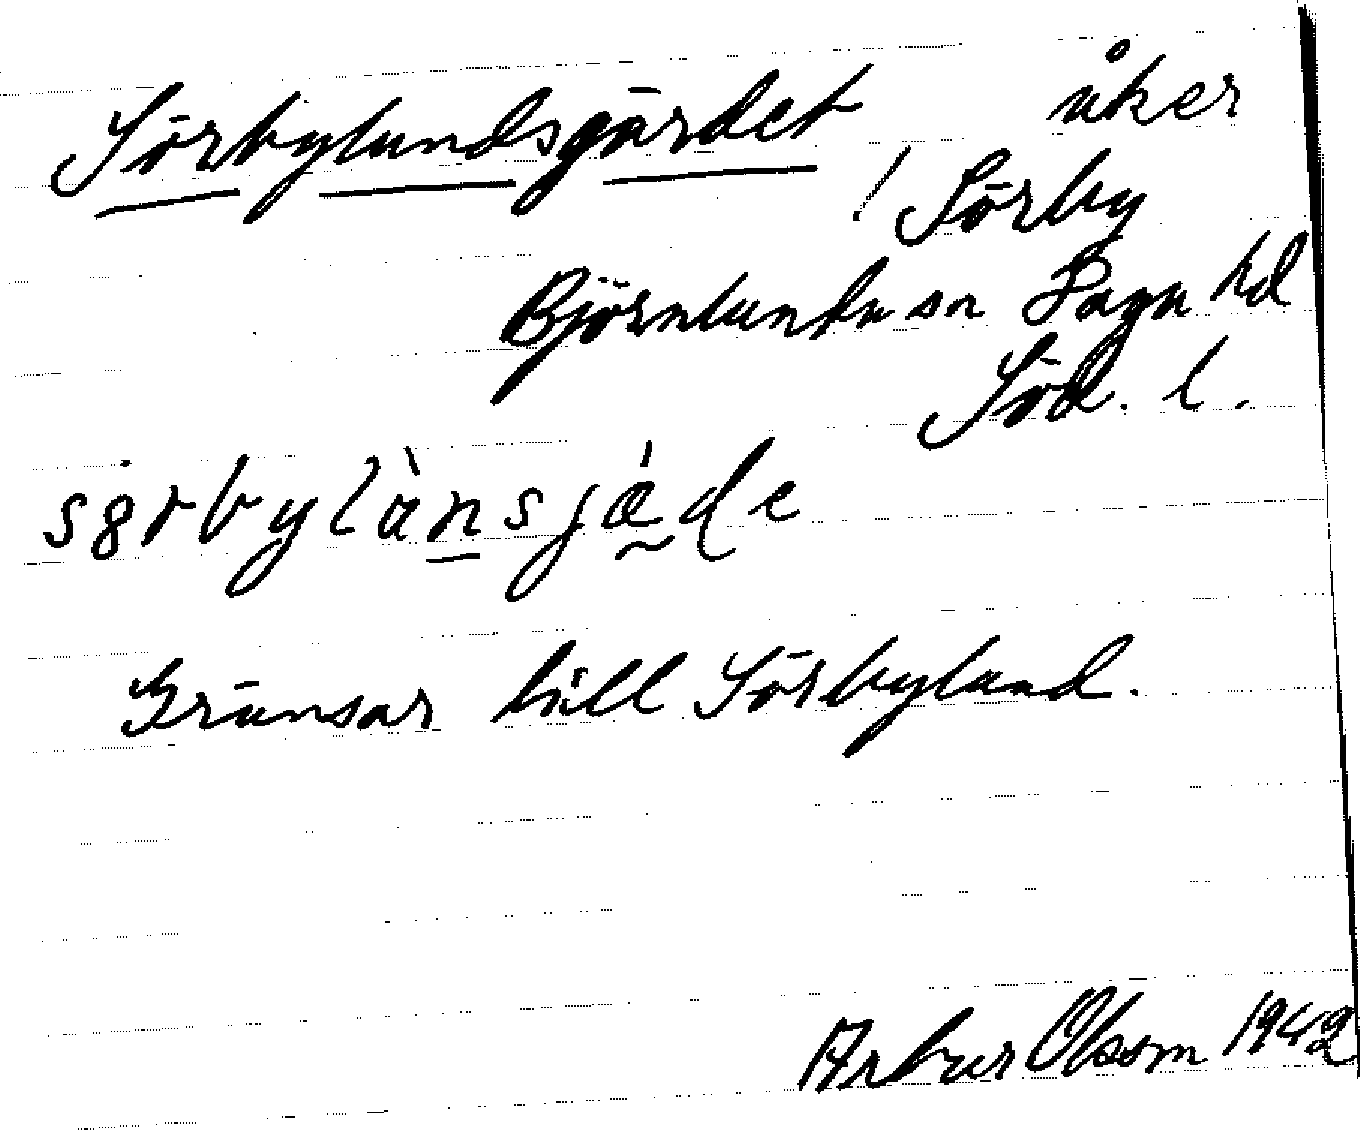 Sörbylundsgärdet åker
/ Sörby
Björnlunda sn Daga hd
Söd. l.
sörbylànsjáde
Gränsar till Sörbylund.
Artur Olsson 1942